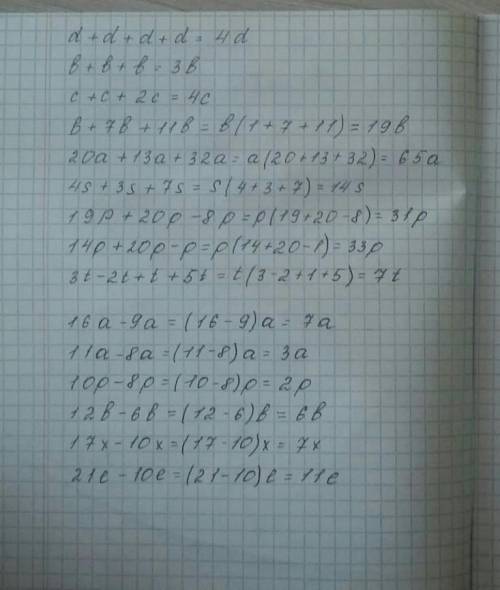 d + d + d + d = 4d
b + b + b = 3b
c + c + 2c = 4c
b + 7b + 11b = b(1 + 7 + 11) = 19b
20a + 13a + 32a = a(20+13+32) = 65a
4s + 3s + 7s = s(4+3+7) = 14s
19p + 20p - 8p = p(19+20-8) = 31p
14p + 20p - p = p(14+20-1) = 33p
3t - 2t + t + 5t = t(3-2+1+5) = 7t
16a - 9a = (16-9)a = 7a
11a - 8a = (11-8)a = 3a
10p - 8p = (10-8)p = 2p
12b - 6b = (12-6)b = 6b
17x - 10x = (17-10)x = 7x
21c - 10c = (21-10)c = 11c